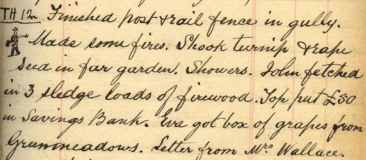 TH 12. Finished post & rail fence in gully.
Made some fires. Shook turnip & rape
seed in far garden. Showers. John fetched
in 3 sledge loads of firewood. Top put £50
in Savings Bank. Eva got box of grapes from
Grummeadows. Letter from Mrs Wallace.